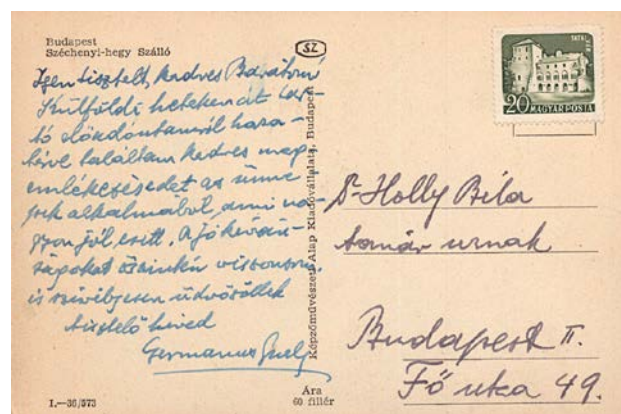 Budapest
Széchenyi-hegy Szálló
SZ
Igen tisztelt, kedves Barátom!
Külföldi heteken át tar-
tó előadóutamról haza-
térve találtam kedves meg
emlékezésedet az ünne
pek alkalmából, ami na-
gyon jól esett. A jókíván-
ságokat őszintén viszonzom,
is szívélyesen üdvözöllek
tisztelő híved
Germanus Gyula
I.—36/573
Képzőművészeti Alap Kiadóvállalata, Budapest
Ára
60 fillér
TATAI VÁR
20 MAGYAR POSTA
Dr Holly Béla
tanár urnak
Budapest II.
Fő utca 49.